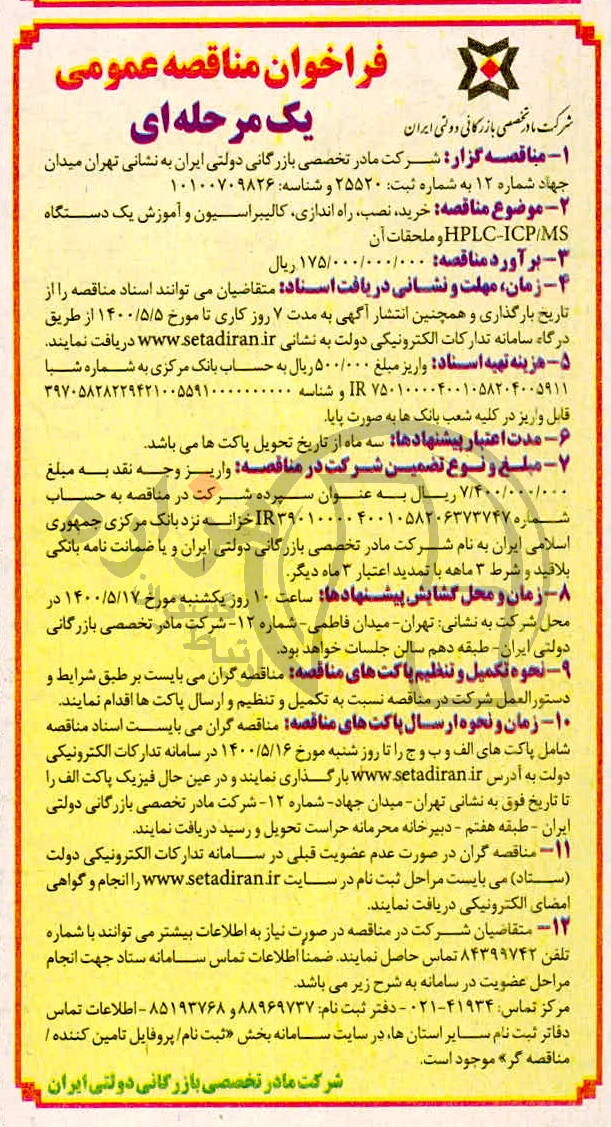 فراخوان مناقصه عمومی
یک مرحله ای
شرکت مادر تخصصی بازرگانی دولتی ایران
۱- مناقصه گزار: شرکت مادر تخصصی بازرگانی دولتی ایران به نشانی تهران میدان
جهاد شماره ۱۲ به شماره ثبت: ۲۵۵۲۰ و شناسه: ۱۰۱۰۰۷۰۹۸۲۶
۲- موضوع مناقصه: خرید، نصب، راه اندازی، کالیبراسیون و آموزش یک دستگاه
HPLC-ICP/MS و ملحقات آن
۳- برآورد مناقصه: ۱۷۵/۰۰۰/۰۰۰/۰۰۰ ریال
۴- زمان، مهلت و نشانی دریافت اسناد: متقاضیان می توانند اسناد مناقصه را از
تاریخ بارگذاری و همچنین انتشار آگهی به مدت ۷ روز کاری تا مورخ ۱۴۰۰/۵/۵ از طریق
درگاه سامانه تدارکات الکترونیکی دولت به نشانی www.setadiran.ir دریافت نمایند.
۵- هزینه تهیه اسناد: واریز مبلغ ۵۰۰/۰۰۰ ریال به حساب بانک مرکزی به شماره شبا
IR ۷۵۰۱۰۰۰۰۴۰۰۱۰۵۸۲۰۴۰۰۵۹۱۱ و شناسه ۳۹۷۰۵۸۲۸۲۲۹۴۲۱۰۰۵۵۹۱۰۰۰۰۰۰۰۰۰۰
قابل واریز در کلیه شعب بانک ها به صورت پایا.
۶- مدت اعتبار پیشنهادها: سه ماه از تاریخ تحویل پاکت ها می باشد.
۷- مبلغ و نوع تضمین شرکت در مناقصه: واریز وجه نقد به مبلغ
۷/۴۰۰/۰۰۰/۰۰۰ ریال به عنوان سپرده شرکت در مناقصه به حساب
شماره IR ۳۹۰۱۰۰۰۰۴۰۰۱۰۵۸۲۰۶۳۷۳۷۴۷ خزانه نزد بانک مرکزی جمهوری
اسلامی ایران به نام شرکت مادر تخصصی بازرگانی دولتی ایران و یا ضمانت نامه بانکی
بلاقید و شرط ۳ ماهه با تمدید اعتبار ۳ ماه دیگر.
۸- زمان و محل گشایش پیشنهادها: ساعت ۱۰ روز یکشنبه مورخ ۱۴۰۰/۵/۱۷ در
محل شرکت به نشانی: تهران- میدان فاطمی- شماره ۱۲- شرکت مادر تخصصی بازرگانی
دولتی ایران- طبقه دهم سالن جلسات خواهد بود.
۹- نحوه تکمیل و تنظیم پاکت های مناقصه: مناقصه گران می بایست بر طبق شرایط و
دستورالعمل شرکت در مناقصه نسبت به تکمیل و تنظیم و ارسال پاکت ها اقدام نمایند.
۱۰- زمان و نحوه ارسال پاکت های مناقصه: مناقصه گران می بایست اسناد مناقصه
شامل پاکت های الف و ب و ج را تا روز شنبه مورخ ۱۴۰۰/۵/۱۶ در سامانه تدارکات الکترونیکی
دولت به آدرس www.setadiran.ir بارگذاری نمایند و در عین حال فیزیک پاکت الف را
تا تاریخ فوق به نشانی تهران- میدان جهاد- شماره ۱۲- شرکت مادر تخصصی بازرگانی دولتی
ایران - طبقه هفتم - دبیرخانه محرمانه حراست تحویل و رسید دریافت نمایند.
۱۱- مناقصه گران در صورت عدم عضویت قبلی در سامانه تدارکات الکترونیکی دولت
(ستاد) می بایست مراحل ثبت نام در سایت www.setadiran.ir را انجام و گواهی
امضای الکترونیکی دریافت نمایند.
۱۲- متقاضیان شرکت در مناقصه در صورت نیاز به اطلاعات بیشتر می توانند با شماره
تلفن ۸۴۳۹۹۷۴۲ تماس حاصل نمایند. ضمناً اطلاعات تماس سامانه ستاد جهت انجام
مراحل عضویت در سامانه به شرح زیر می باشد.
مرکز تماس: ۴۱۹۳۴-۰۲۱ - دفتر ثبت نام: ۸۸۹۶۹۷۳۷ و ۸۵۱۹۳۷۶۸ - اطلاعات تماس
دفاتر ثبت نام سایر استان ها، در سایت سامانه بخش «ثبت نام/ پروفایل تامین کننده /
مناقصه گر» موجود است.
شرکت مادر تخصصی بازرگانی دولتی ایران